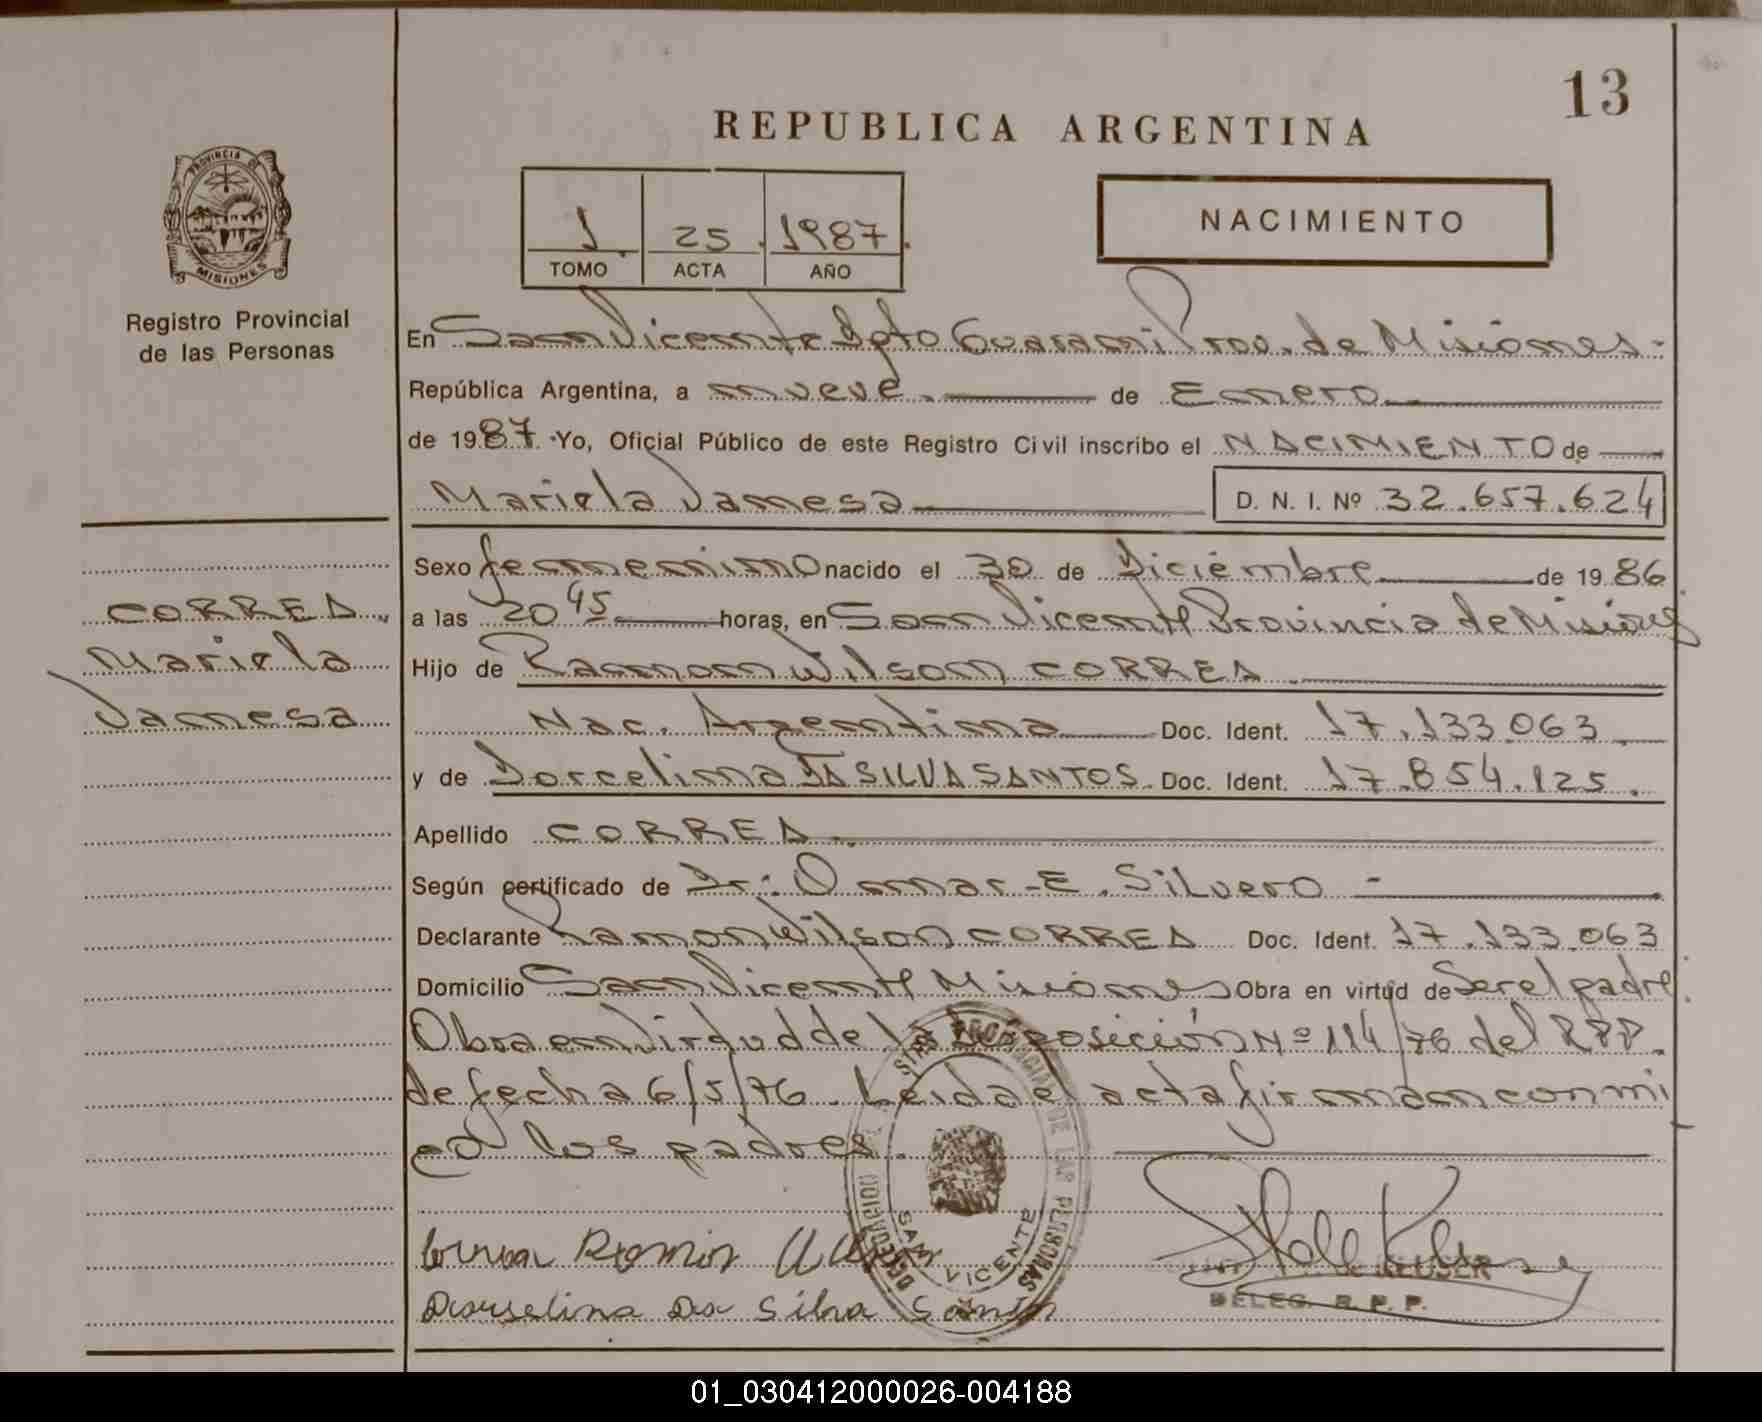 13
REPUBLICA ARGENTINA
1 25. 1987.
TOMO ACTA AÑO
NACIMIENTO
PROVINCIA DE
MISIONES
Registro Provincial
de las Personas
En San Vicente Dpto Guarani Prov. de Misiones-
República Argentina, a nueve. de Enero
de 1987. Yo, Oficial Público de este Registro Civil inscribo el NACIMIENTO de
Mariela Vanesa D. N. I. Nº 32.657.624
Sexo femenino nacido el 30 de Diciembre de 1986
a las 20 45 horas, en San Vicente Provincia de Misiones
Hijo de Ramon Wilson CORREA
Nac. Argentina Doc. Ident. 17.133.063
y de Dorcelina DA SILVA SANTOS. Doc. Ident. 17.854.125.
Apellido CORREA.
Según certificado de Dr: Omar E. Silvero -
Declarante Ramon Wilson CORREA Doc. Ident. 17.133.063
Domicilio San Vicente Misiones Obra en virtud de Ser el padre.
Obra en Virtud de la Disposición Nº 114/76 del RPP.
de fecha 6/5/76. Leida el acta firman con mi
go los padres.
CORREA
Mariela
Vanesa
DELEGACION SAN VICENTE
Ramon
Dorselina Da Silva Santos
KLUSER
DELEG. R. P. P.
01_030412000026-004188